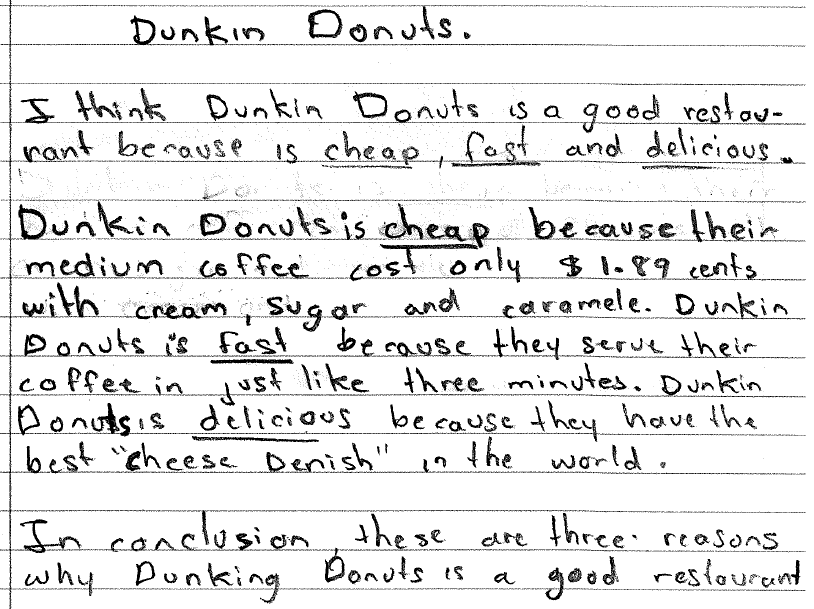 Dunkin Donuts.
I think Dunkin Donuts is a good restau-
rant because is cheap, fast and delicious.
Dunkin Donuts is cheap because their
medium coffee cost only $ 1.89 cents
with cream, sugar and caramele. Dunkin
Donuts is fast because they serve their
coffee in just like three minutes. Dunkin
Donuts is delicious because they have the
best "cheese Denish" in the world.
In conclusion, these are three reasons
why Dunking Donuts is a good restaurant